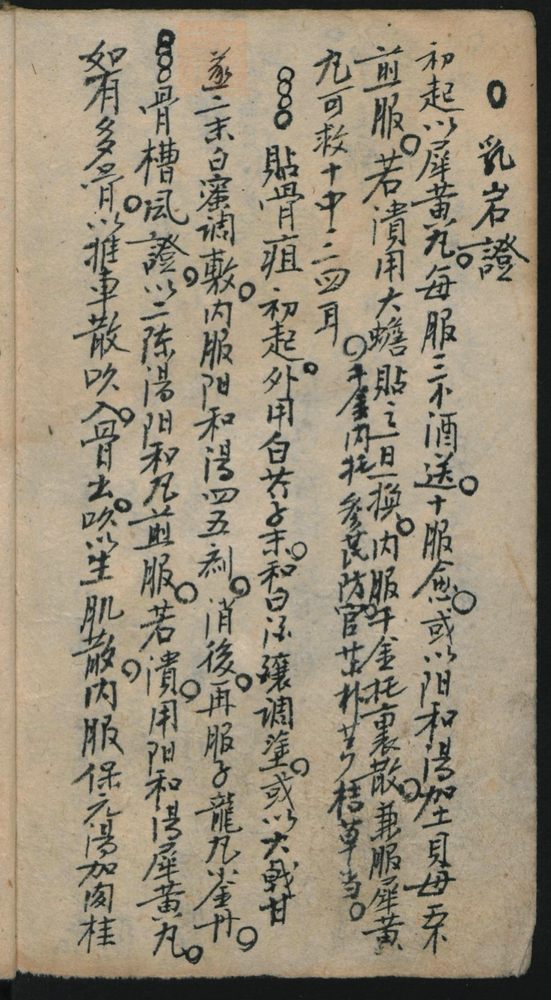 乳岩證
初起以犀黃丸。每服三不酒送。十服愈。或以阳和湯加土貝母五不
煎服。若潰用大蟾貼之。一日一換。内服千金托裏散。兼服犀黃
丸可救十中三四耳
千金内托參芪防官芎朴芍桔草当。
貼骨疽初起。外用白芥子末。和白酒釀調塗。或以大戟甘
遂二末白蜜調敷。内服阳和湯四五劑。消後。再服子龍丸小金丹。
骨槽風證。以二陈湯阳和丸煎服。若潰。用阳和湯犀黃丸。
如有多骨。以推車散吹入。骨出。吹以生肌散。内服保元湯加肉桂